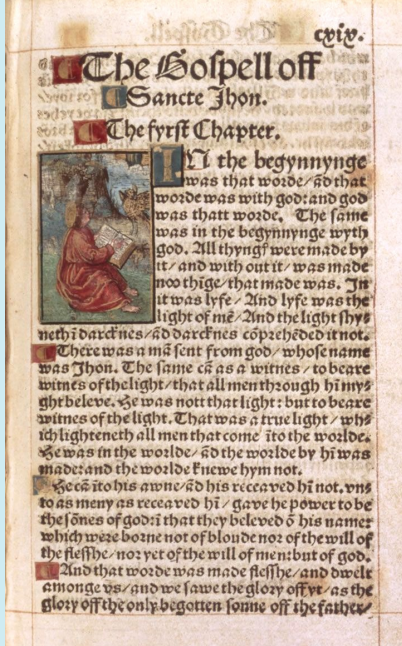 cxix.
The Gospell off
Sancte Jhon.
The fyrst Chapter.
IN the begynnynge
was that worde/ ād that
worde was with god: and god
was thatt worde. The same
was in the begynnynge wyth
god. All thyngꝭ were made by
it/ and with out it/ was made
noo thīge/ that made was. In
it was lyfe/ And lyfe was the
light of mē/ And the light shy⸗
neth ī darcknes/ ād darcknes cōprehēded it not.
There was a mā sent from god/ whose name
was Jhon. The same cā as a witnes/ to beare
witnes of the light/ that all men through hī my⸗
ght beleve. He was nott that light: but to beare
witnes of the light. That was a true light/ whi⸗
ich lighteneth all men that come īto the worlde.
He was in the worlde/ ād the worlde by hī was
made: and the worlde knewe hym not.
He cā īto his awne/ ād his receaved hī not. vns
to as meny as receaved hī/ gave he power to be
the sōnes of god: ī that they beleved ō his name:
which were borne not of bloude nor of the will of
the flesshe/ nor yet of the will of men: but of god.
And that worde was made flesshe/ and dwelt
amonge vs/ and we sawe the glory off yt/ as the
glory off the only begotten sonne off the father/